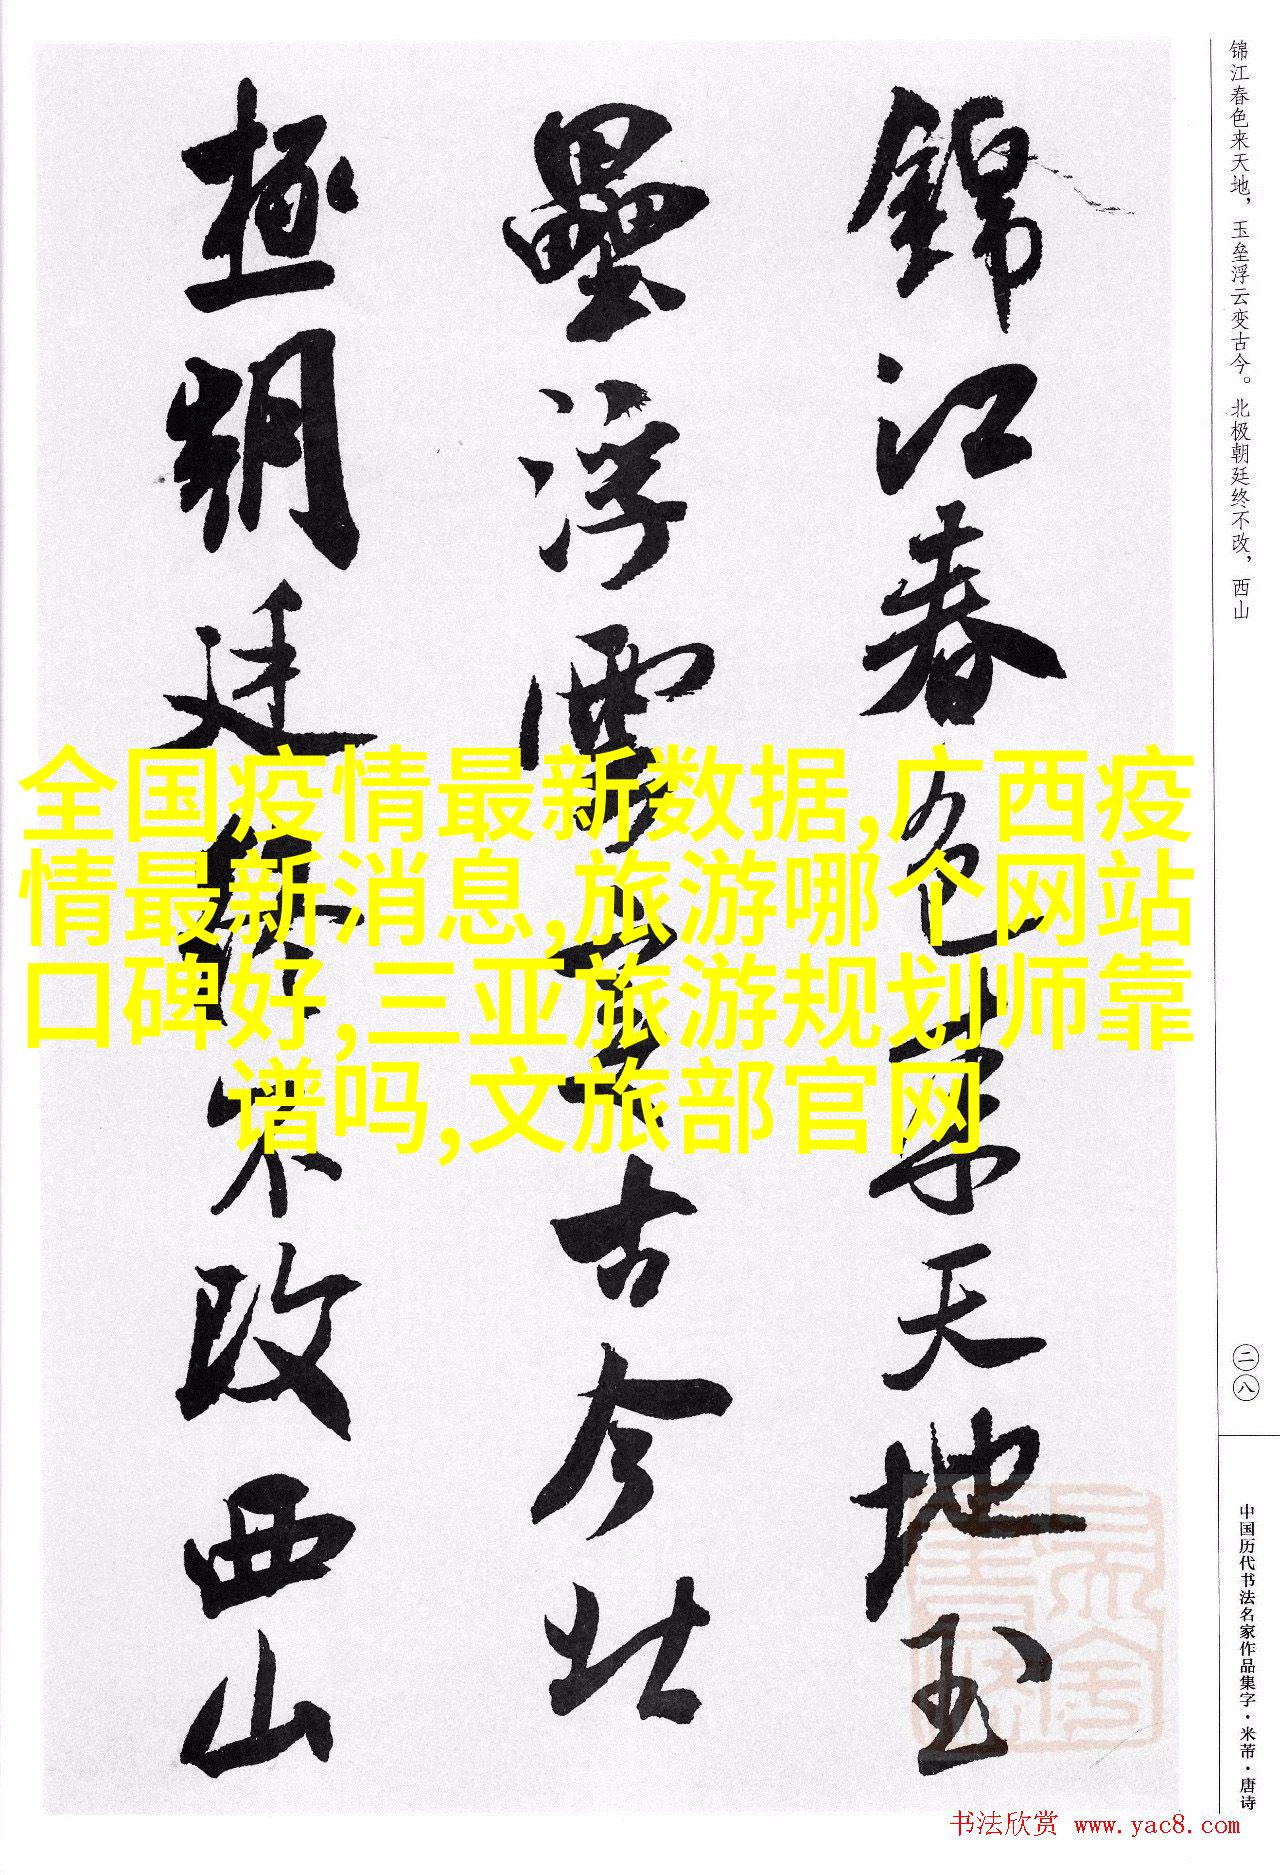 锦江春色来天地，玉垒浮云变古今。北极朝廷终不改，西山
錦江春色来天地玉
壘浮雲变古今北
極朝廷終不改西山
全国疫情最新数据,广西疫
情最新消息,旅游哪个网站
口碑好,三亚旅游规划师靠
谱吗,文旅部官网
二八
中国历代书法名家作品集字·米芾·唐诗
书法欣赏 www.yac8.com